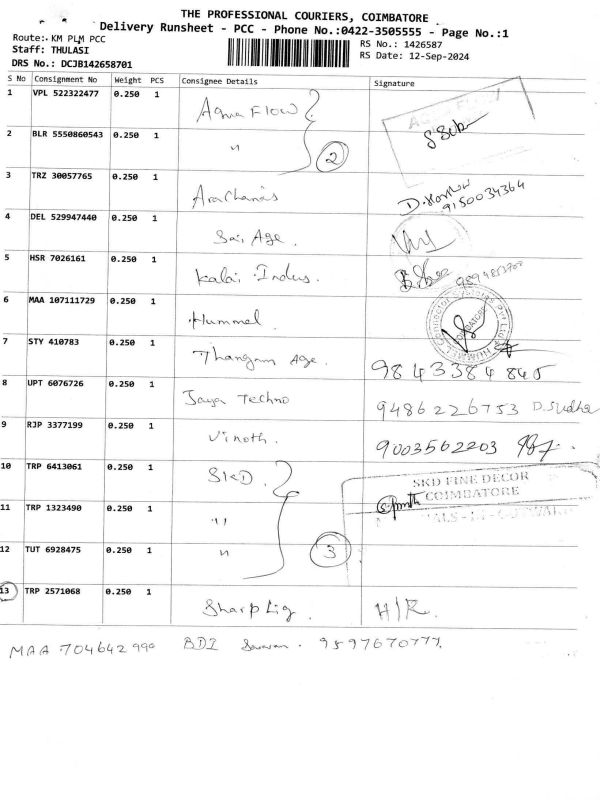 THE PROFESSIONAL COURIERS, COIMBATORE
Delivery Runsheet - PCC - Phone No.:0422-3505555 - Page No.:1
Route: KM PLM PCC
RS No.: 1426587
Staff: THULASI
RS Date: 12-Sep-2024
DRS No.: DCJB142658701
S No Consignment No Weight PCS Consignee Details Signature
1 VPL 522322477 0.250 1 Aqua Flow AQUA FLOW
2 BLR 5550860543 0.250 1 " 2
3 TRZ 30057765 0.250 1 Arachanas 9150034364
4 DEL 529947440 0.250 1 Sai Age.
5 HSR 7026161 0.250 1 Kalai Indus.
6 MAA 107111729 0.250 1 Hummel
7 STY 410783 0.250 1 Thangam Age. 9843384845
8 UPT 6076726 0.250 1 Jaya Techno 9486226753 D.Sudha
9 RJP 3377199 0.250 1 Vinoth. 9003562203
10 TRP 6413061 0.250 1 SKD. SKD FINE DECOR
COIMBATORE
11 TRP 1323490 0.250 1 "
12 TUT 6928475 0.250 1 " 3
13 TRP 2571068 0.250 1 Sharp Lig H/R.
MAA 704642990 BDI Saravan. 9597670777.